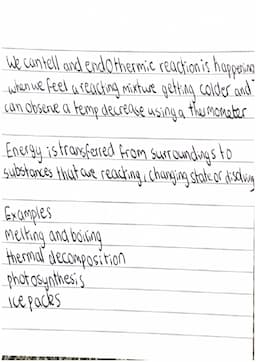 We can tell and endothermic reaction is happening
when we feel a reacting mixture getting colder and
can observe a temp decrease using a thermometer
Energy is transferred from surroundings to
substances that are reacting, changing state or disolving
Examples
melting and boiling
thermal decomposition
photosynthesis
ice packs